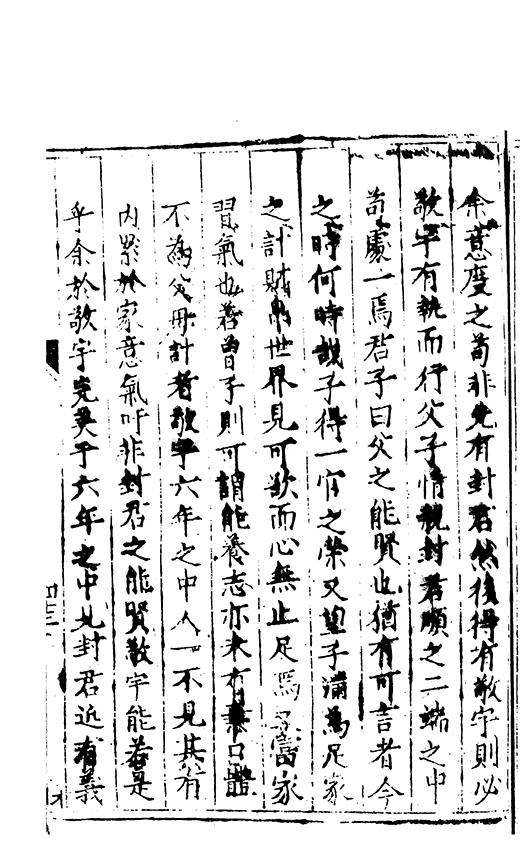 余意度之苟非先有封君然後得有敬宇則必
敬宇有執而行父子情親封君順之二端之中
苟處一焉君子曰父之能賢也猶有可言者今
之時何時哉子得一官之榮又望子滿爲足家
之計財帛世界見可欲而心無止足焉富家
習氣也若曾子則可謂能養志亦未有養口體
不爲父母計者敬宇六年之中人一不見其有
內累於家意氣吁非封君之能賢敬宇能若是
乎余於敬宇完美于六年之中見封君近有義
四三